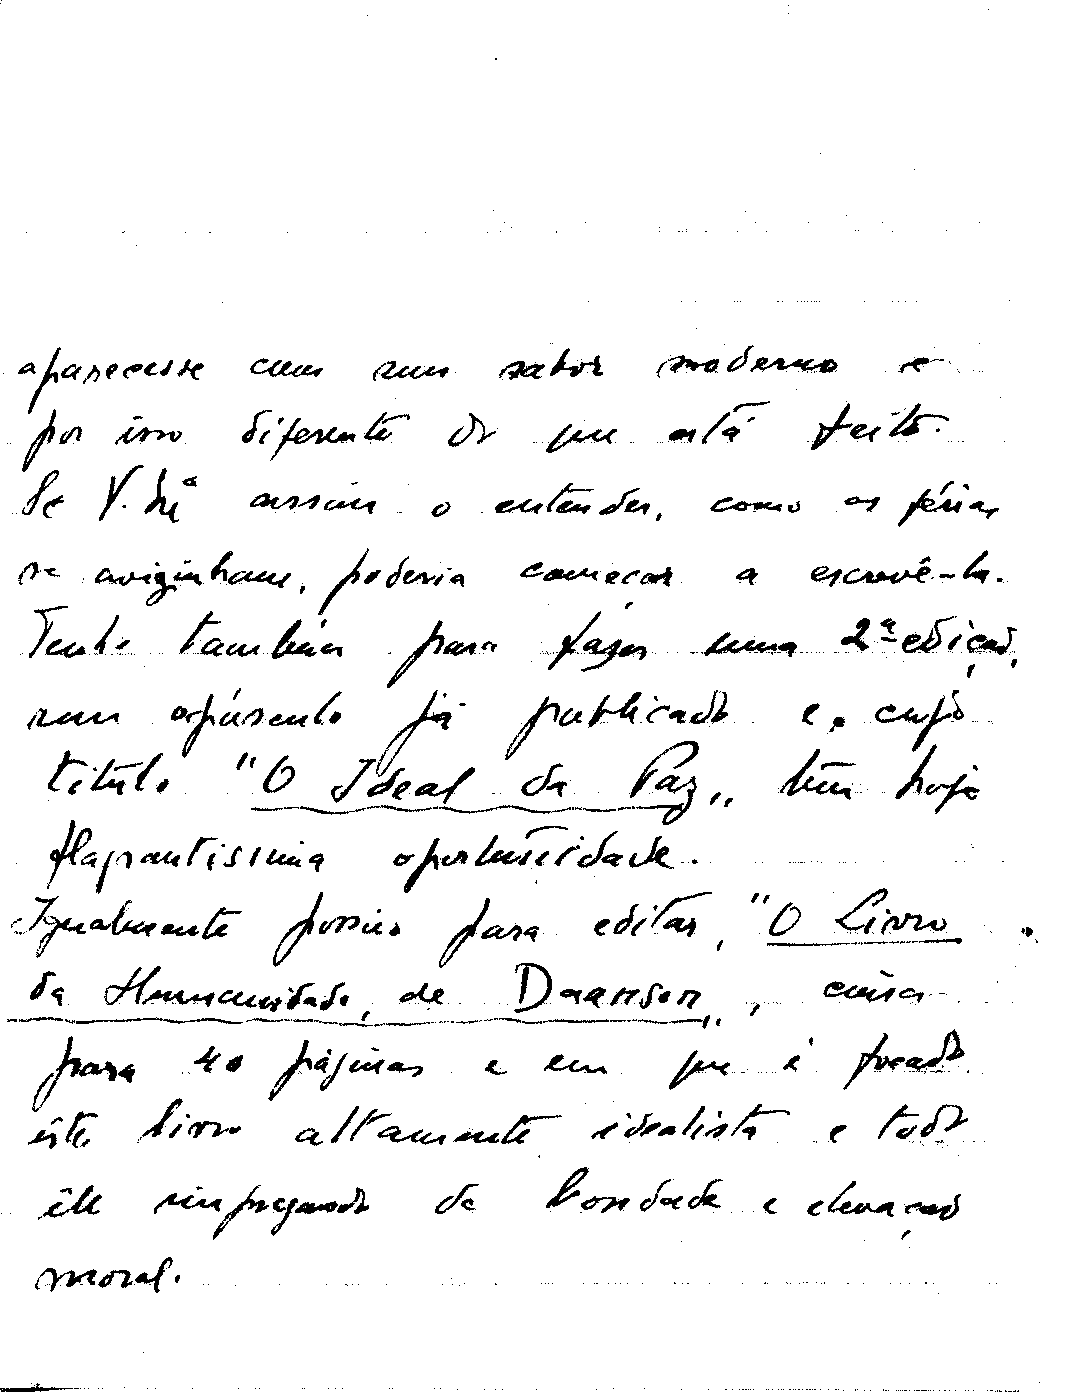 aparecesse com um sabor moderno e
por isso diferente do que está feito.
Se V. assim o entender, como as férias
se avizinham, poderia começar a escrevê-la.
Tenho também para fazer uma 2ª edição,
um opúsculo já publicado e cujo
título "O Ideal da Paz„ tem hoje
flagrantíssima oportunidade.
Igualmente possuo para editar, "O Livro
da Humanidade, de Daanson„, coisa
para 40 páginas e em que é focado
êste livro altamente idealista e todo
êle impregnado de bondade e elevação
moral.